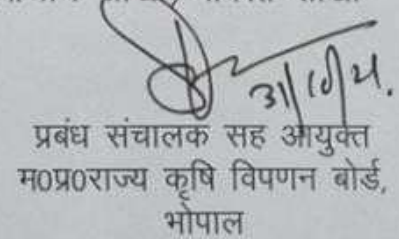 31/10/21.
प्रबंध संचालक सह आयुक्त
म0प्र0राज्य कृषि विपणन बोर्ड,
भोपाल